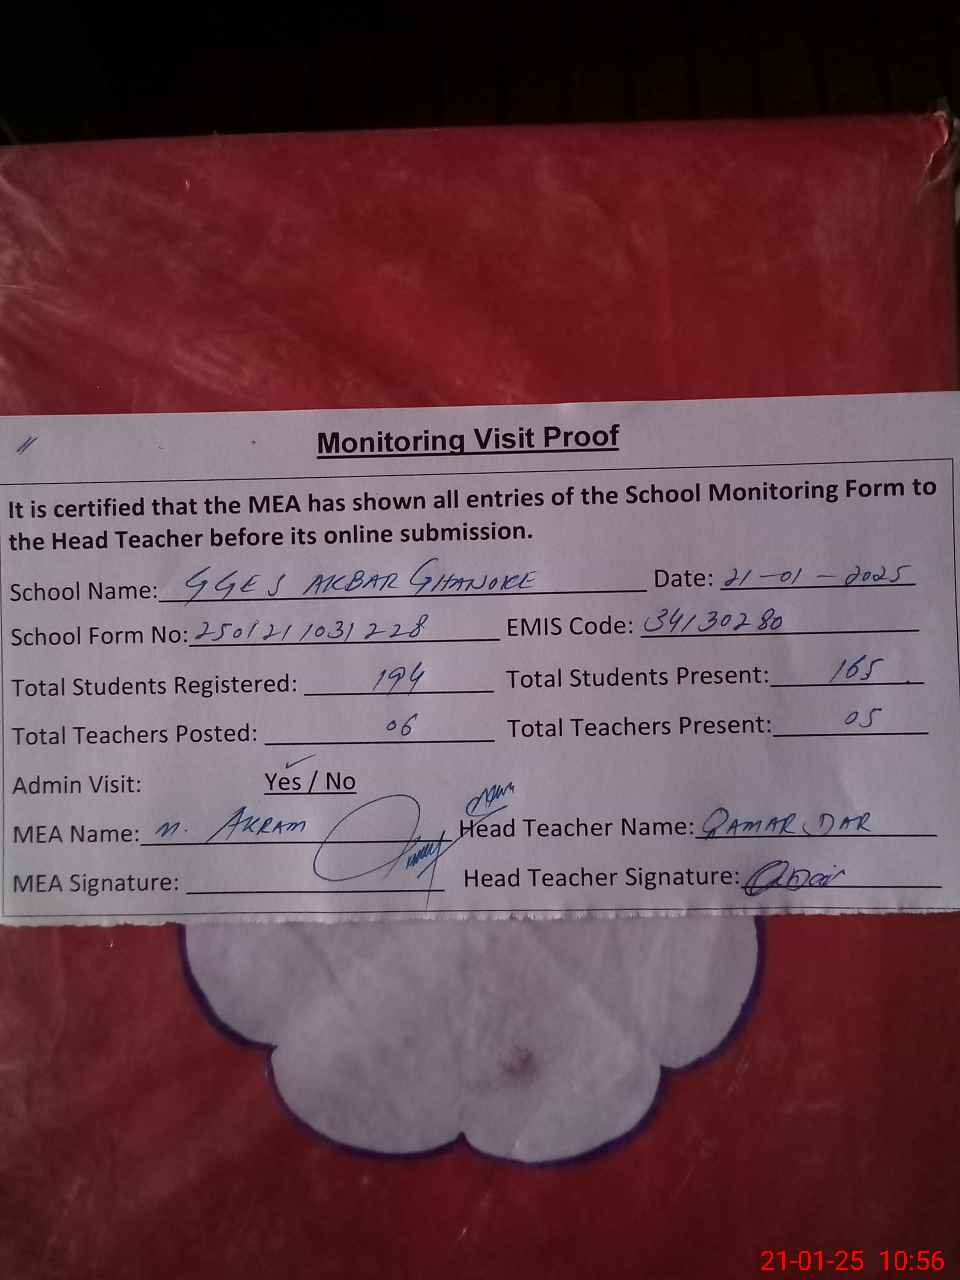 Monitoring Visit Proof
It is certified that the MEA has shown all entries of the School Monitoring Form to
the Head Teacher before its online submission.
School Name: GGES AKBAR GHANOKE Date: 21-01-2025
School Form No: 2501211031228 EMIS Code: 34130280
Total Students Registered: 194 Total Students Present: 165
Total Teachers Posted: 06 Total Teachers Present: 05
Admin Visit: Yes / No
MEA Name: M. AKRAM Head Teacher Name: QAMAR DAR
MEA Signature: Head Teacher Signature:
21-01-25 10:56